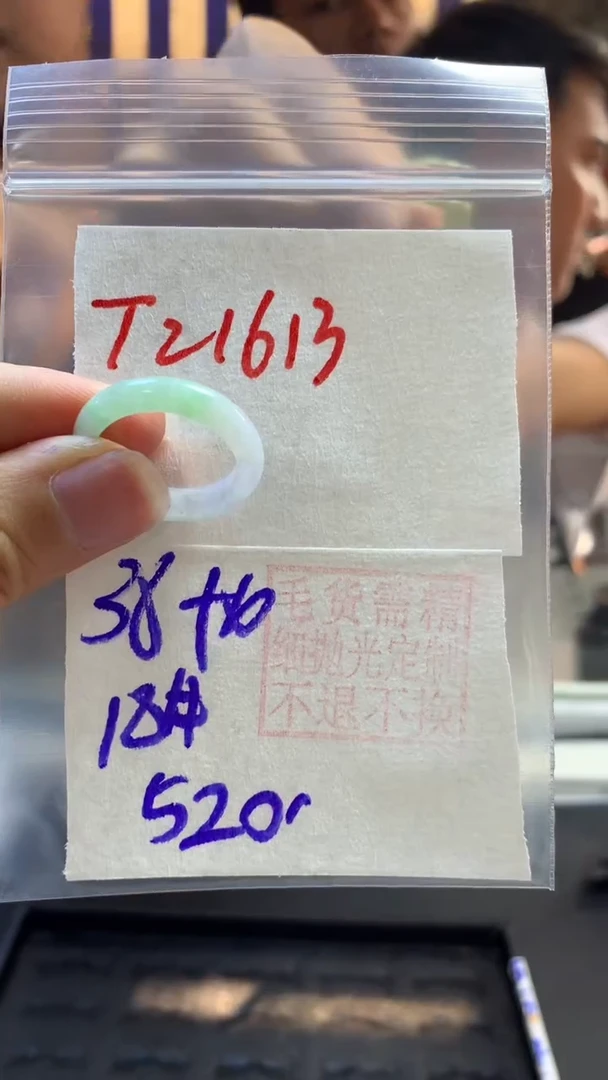 T21613
毛货需精
细抛光定制
不退不换
18#
520